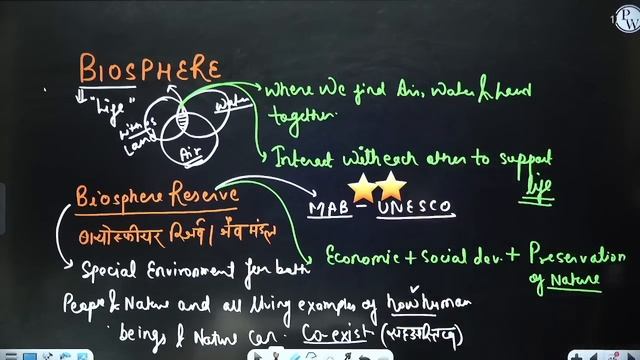 BIOSPHERE
"Life"
Where We find Air, Water & Land
together.
Water
Lithos
Land
Air
Interact with each other to support
life
Biosphere Reserve
MAB - UNESCO
बायोस्फीयर रिजर्व / जैव मंडल
Economic + Social dev. + Preservation
of Nature
Special Environment for both
People & Nature and all living examples of how human
beings & Nature can Co-exist (सहअस्तित्व)
PW